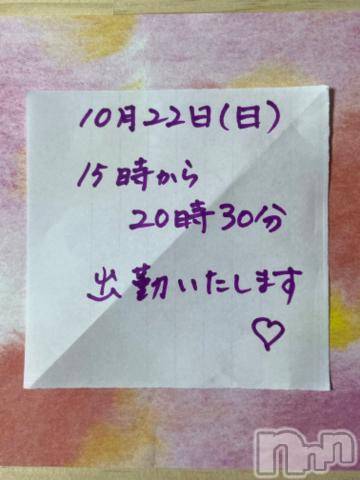 10月22日(日)
15時から
20時30分
出勤いたします
♡
nnn